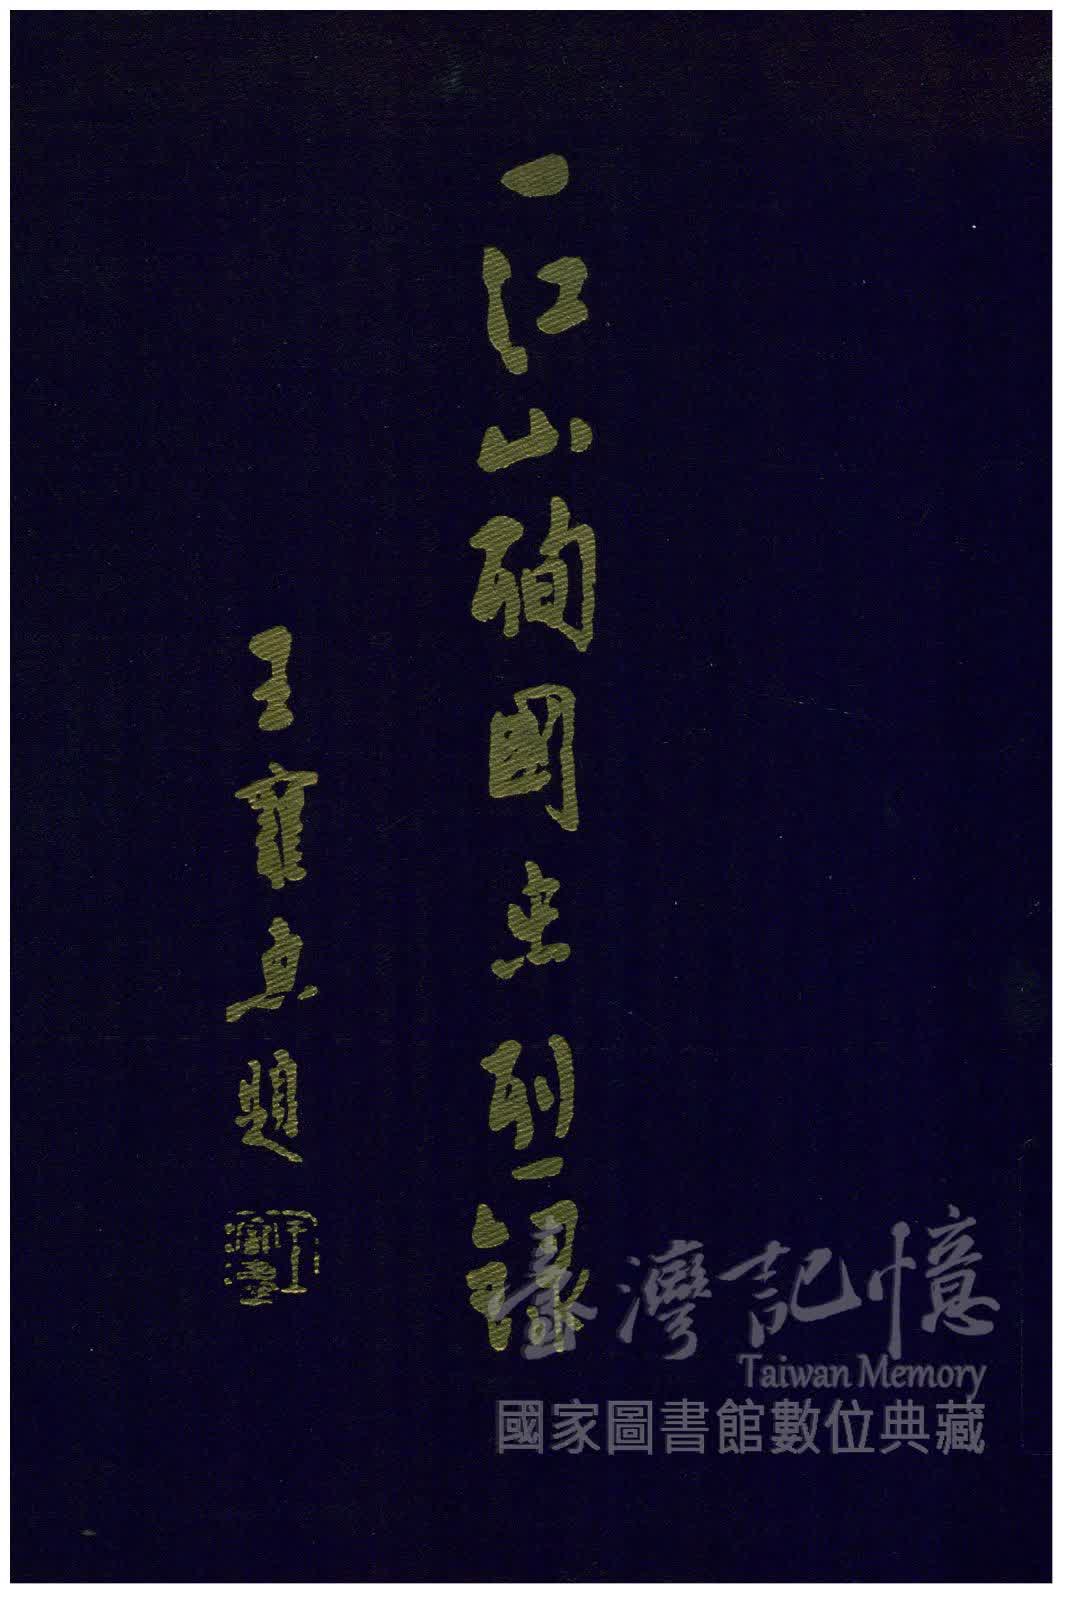 一江山殉國忠烈錄
王 題
臺灣記憶
Taiwan Memory
國家圖書館數位典藏